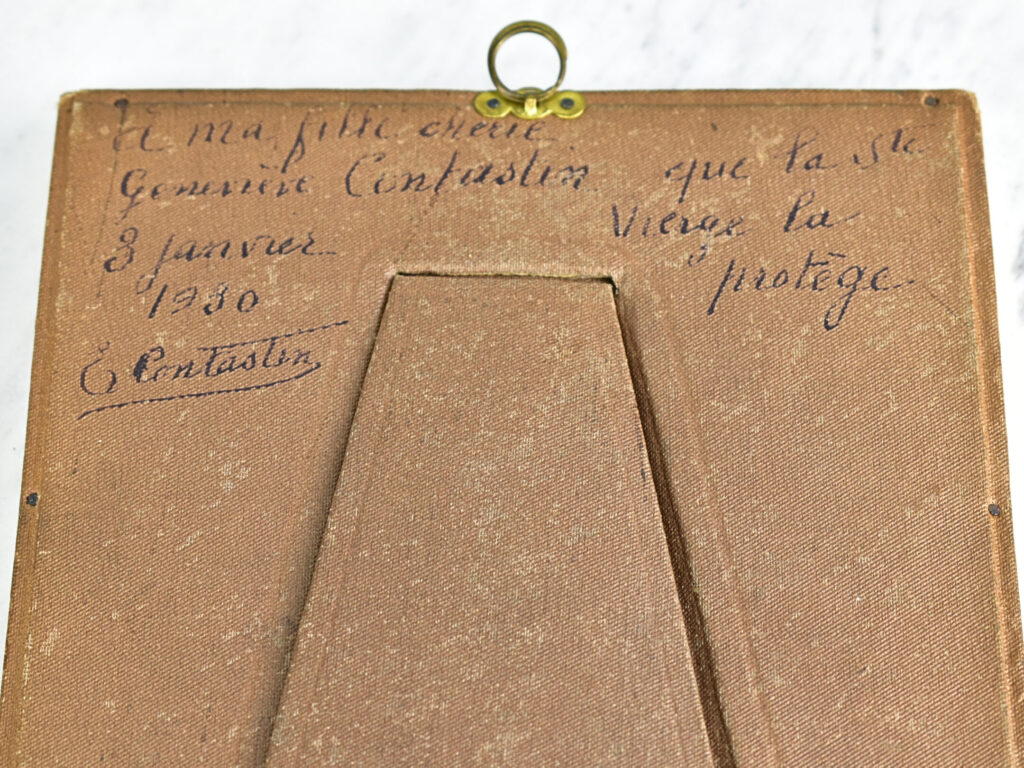 à ma fille chérie
Geneviève Contastin
3 janvier
1930
E Contastin
que la Ste
Vierge la
protège.